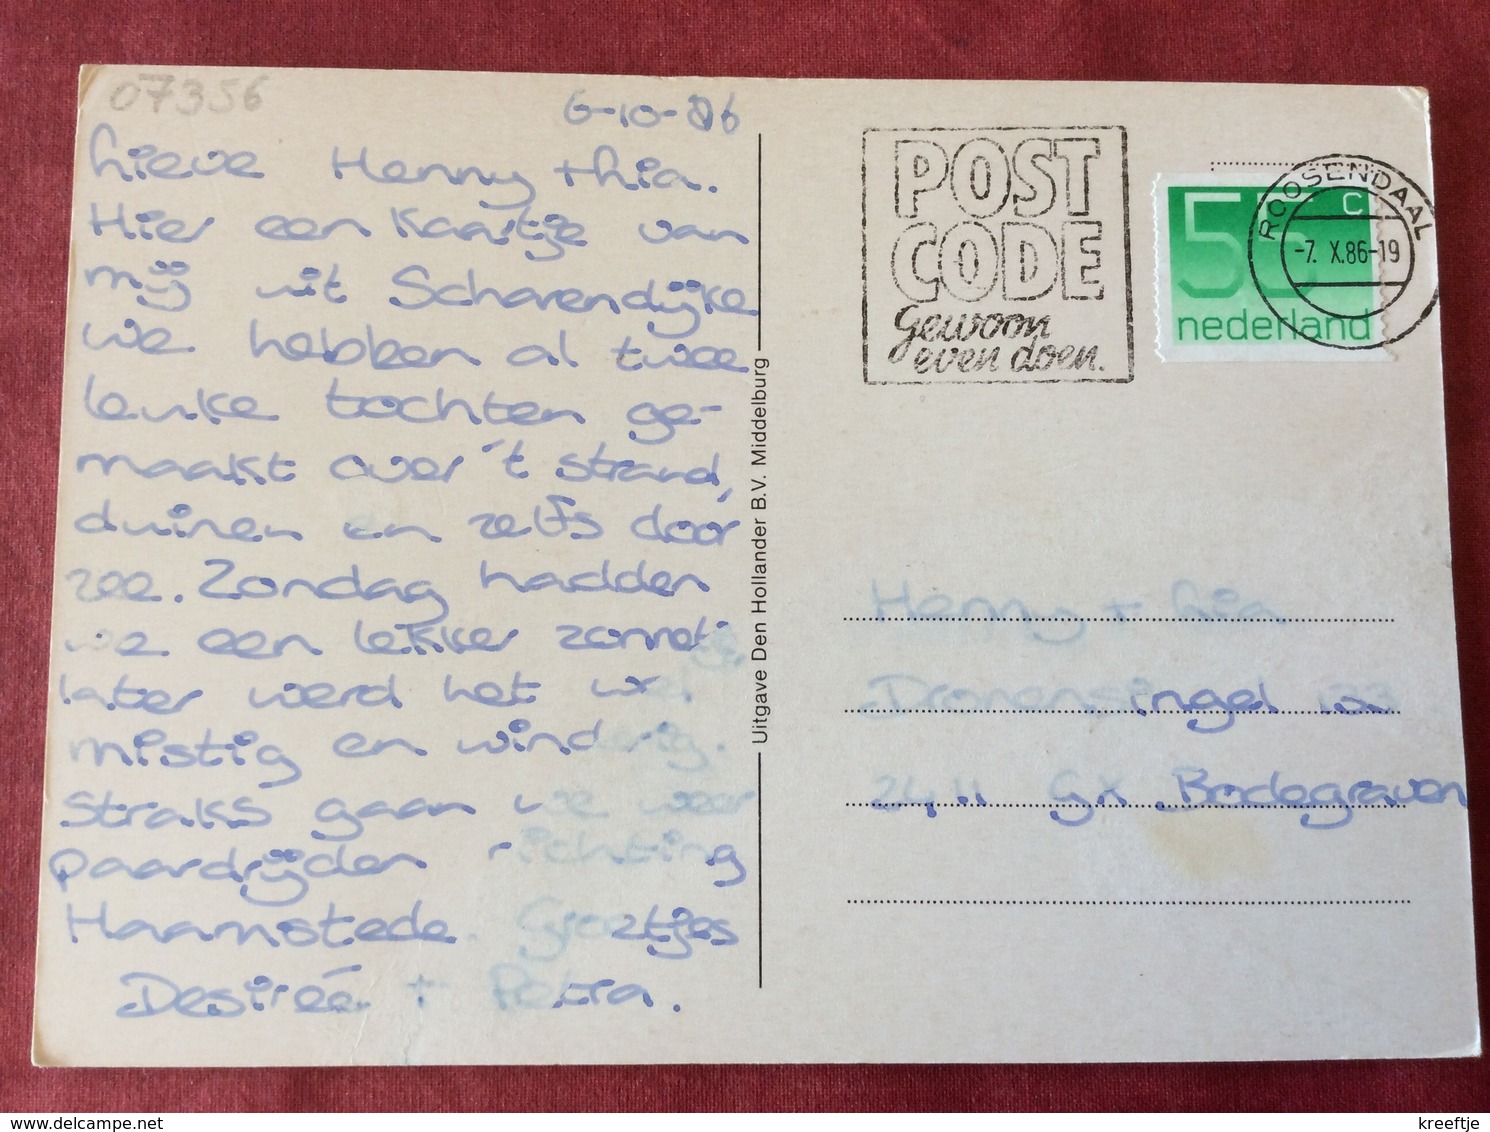 07356
6-10-86
Lieve Henny + Lia.
Hier een kaartje van
mij uit Scharendijke
we hebben al twee
leuke tochten ge-
maakt over 't strand,
duinen en zelfs door
zee. Zondag hadden
we een lekker zonnetje
later werd het wel
mistig en winderig.
Straks gaan we weer
paardrijden richting
Haamstede. Groetjes
Desireé + Petra.
Uitgave Den Hollander B.V. Middelburg
POST
CODE
gewoon
even doen.
55 c
nederland
ROOSENDAAL
-7. X.86-19
Henny + Lia
singel 133
2411 GX Bodegraven
kreeftje